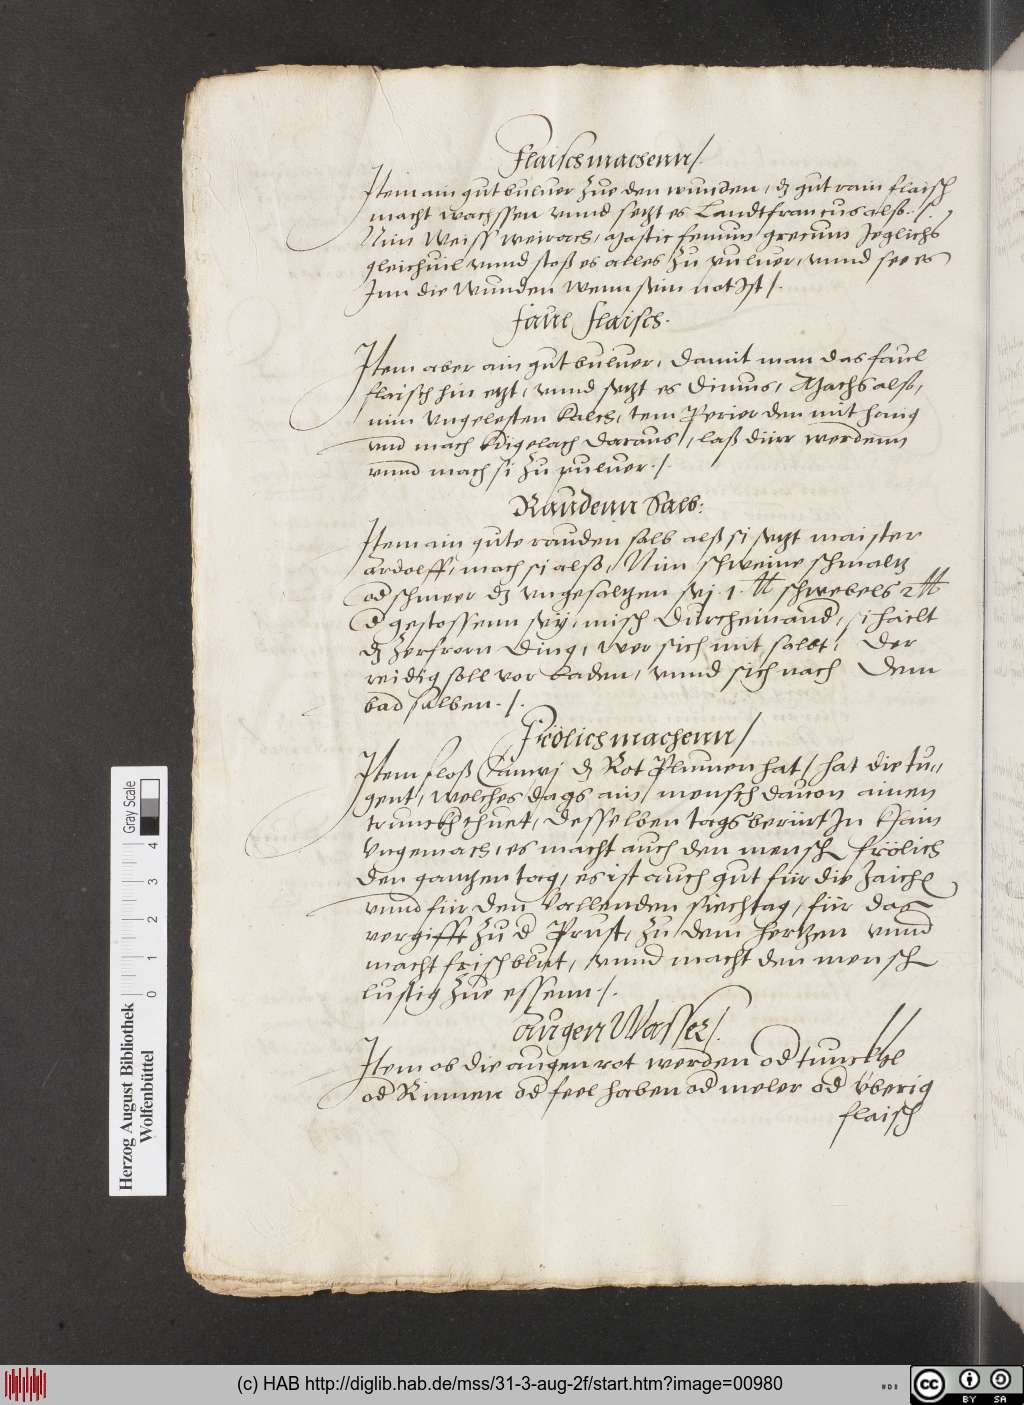 Flaisch machenn /.
Item ain gut buluer Zue den wunden, dz gut rain flaisch
macht wachssen vnnd setzt es Landtfrancus alß. /.
Nim Weiss weirach, Mastic fenum grecum Jeglichs
gleichuil vnnd stoß es alles Zu puluer, vnnd see es
Jnn die Wunden wenn sein not Jst /.
faul flaisch.
Item aber ain gut buluer, damit man das faul
flaisch hin etzt, vnnd setzt es Dinus, Machs alß,
nim Vngelesten kalch, tem den mit honig
vnd mach kügelach daraus, laß dürr werdenn
vnnd mach si Zu puluer. /.
Raudenn Salb:
Item ain gute rauden salb alß si setzt maister
ardolff, mach si alß, Nim schweine schmaltz
od schmeer dz vngesaltzen sej. 1. ℔ schwebels 2 ℔
d gestossenn sej, misch durcheinand, si hailt
dz Zerfrorn Ding, Wer sich mit salbt, Der
reidig soll vor baden, vnnd sich nach dem
bad salben. /.
Frölich machenn /
Item floß Camrj dz Rot Plumen hat / hat die tu=
gent, welches dags ain mensch dauon ainen
trunckh thuet, desselben tags berürt Jn khain
Vngemach, es macht auch den mensch frölich
den gantzen tag, es ist auch gut für die
vnnd für den Vallenden siechtag, für das
vergifft Zu d Prust, Zu dem hertzen vnnd
macht frisch blut, vnnd macht den mensch
lustig Zue essenn. /.
augen Wasser /.
Item ob die augen rot werden od tunckhel
od Rinnen od feel haben od meler od überig
flaisch
Herzog August Bibliothek
Wolfenbüttel
0 1 2 3 4
Gray Scale
(c) HAB http://diglib.hab.de/mss/31-3-aug-2f/start.htm?image=00980
cc BY SA